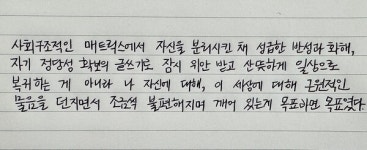 사회구조적인 매트릭스에서 자신을 분리시킨 채 성급한 반성과 화해,
자기 정당성 확보의 글쓰기로 잠시 위안 받고 산뜻하게 일상으로
복귀하는 게 아니라 나 자신에 대해, 이 세상에 대해 근원적인
물음을 던지면서 조금씩 불편해지며 깨어 있는게 목표라면 목표였다.